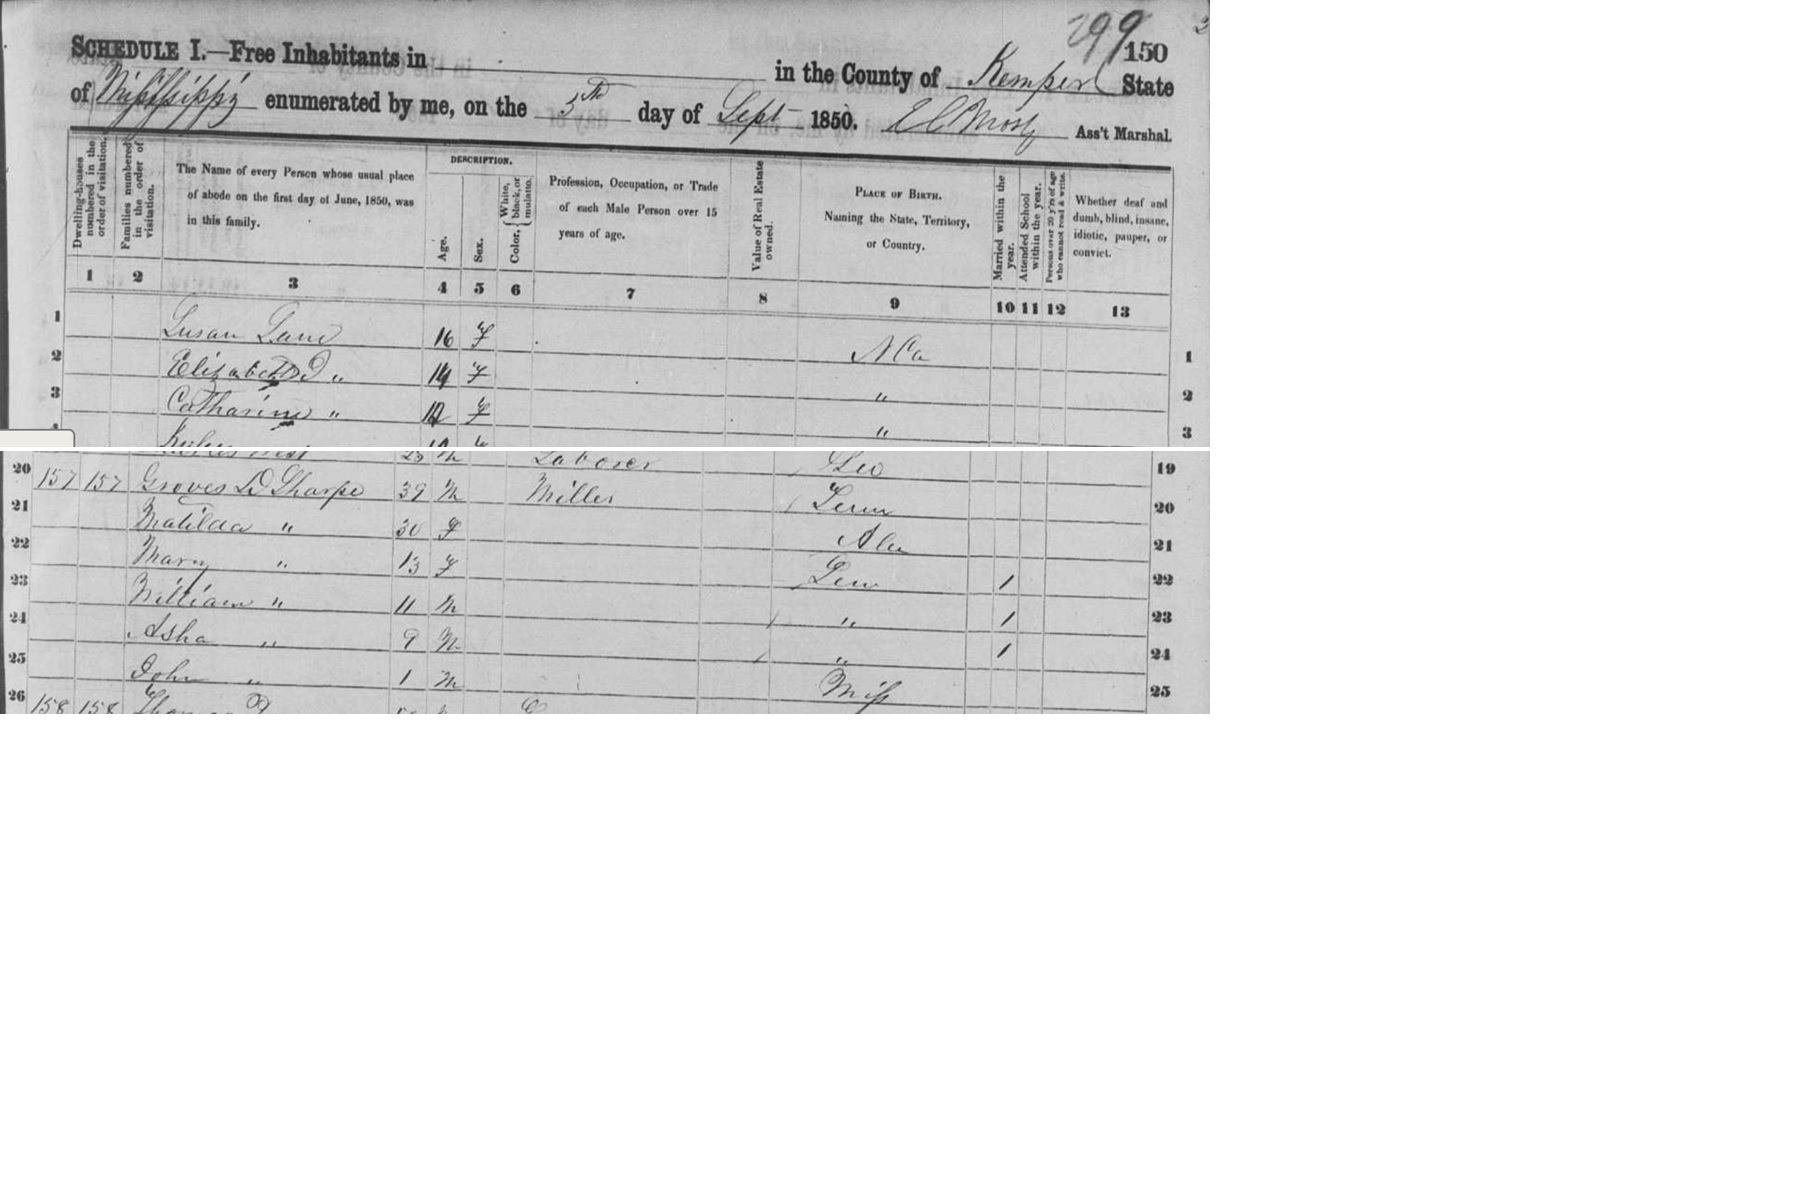 299 150
SCHEDULE I.—Free Inhabitants in in the County of Kemper State
of Mississippi enumerated by me, on the 5th day of Sept 1850. E C Mosly Ass't Marshal.
Dwelling-houses numbered in the order of visitation.
Families numbered in the order of visitation.
The Name of every Person whose usual place of abode on the first day of June, 1850, was in this family.
DESCRIPTION.
Age.
Sex.
Color, { White, black, or mulatto.
Profession, Occupation, or Trade of each Male Person over 15 years of age.
Value of Real Estate owned.
PLACE OF BIRTH. Naming the State, Territory, or Country.
Married within the year.
Attended School within the year.
Persons over 20 y'rs of age who cannot read & write.
Whether deaf and dumb, blind, insane, idiotic, pauper, or convict.
1 2 3 4 5 6 7 8 9 10 11 12 13
1 Susan Lane 16 F N Ca 1
2 Elizabeth D " 14 F " 2
3 Catharine " 12 F " 3
Laborer Geo 19
20 157 157 Groves D Sharpe 39 M Miller Tenn 20
21 Matilda " 30 F Ala 21
22 Mary " 13 F Tenn 1 22
23 William " 11 M " 1 23
24 Asha " 9 M " 1 24
25 John " 1 M Miss 25
26 158 158